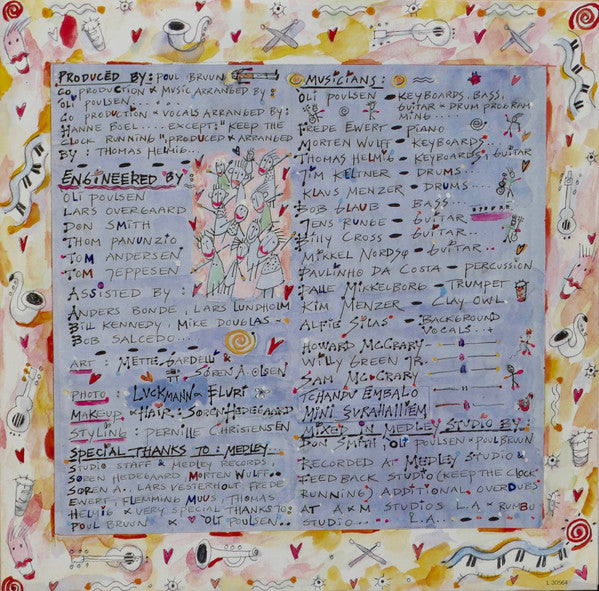 PRODUCED BY : POUL BRUUN
CO PRODUCTION × MUSIC ARRANGED BY :
OLI POULSEN....
CO PRODUCTION × VOCALS ARRANGED BY :
HANNE BOEL.... EXCEPT: KEEP THE
CLOCK RUNNING PRODUCED × ARRANGED
BY : THOMAS HELMIG...
ENGINEERED BY
OLI POULSEN
LARS OVERGAARD
DON SMITH
THOM PANUNZIO
TOM ANDERSEN
TOM JEPPESEN
ASSISTED BY :
ANDERS BONDE, LARS LUNDHOLM
BILL KENNEDY, MIKE DOUGLAS -
BOB SALCEDO...
ART : METTE BARDELL &
SØREN A. OLSEN
PHOTO : LUCKMANN × ELURI
MAKE-UP × HAIR : SØREN HEDEGAARD
STYLING : PERNILLE CHRISTENSEN
SPECIAL THANKS TO : MEDLEY...
STUDIO STAFF & MEDLEY RECORDS,
SØREN HEDEGAARD MORTEN WULFF
SØREN A., LARS VESTERHOLT FREDE
EWERT, FLEMMING MUUS, THOMAS
HELMIG × VERY SPECIAL THANKS TO :
POUL BRUUN × OLI POULSEN..
MUSICIANS :
OLI POULSEN - KEYBOARDS, BASS,
GUITAR × DRUM PROGRAM
MING....
FREDE EWERT - PIANO
MORTEN WULFF - KEYBOARDS..
THOMAS HELMIG - KEYBOARDS, GUITAR
TIM KELTNER - DRUMS..
KLAUS MENZER - DRUMS....
BOB GLAUB - BASS
JENS RUNGE - GUITAR
BILLY CROSS - GUITAR..
MIKKEL NORDSØ - GUITAR..
PAULINHO DA COSTA - PERCUSSION
PALLE MIKKELBORG - TRUMPET
KIM MENZER - CLAY OWL.
ALFIE SILAS - BACKGROUND
VOCALS...
HOWARD McCRARY
WILLY GREEN JR.
SAM McCRARY
TCHANDU EMBALO
MINI SURAHALLIEM
MIXED IN MEDLEY STUDIO BY :
DON SMITH, OLI POULSEN × POUL BRUUN
RECORDED AT MEDLEY STUDIO &
FEED BACK STUDIO (KEEP THE CLOCK
RUNNING) ADDITIONAL OVERDUBS
AT A×M STUDIOS L.A × RUMBO
STUDIO... L.A...
L 30564